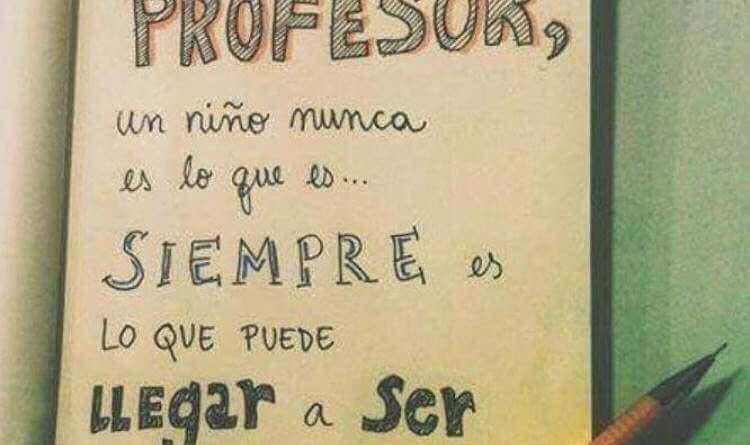 PROFESOR,
un niño nunca
es lo que es...
SIEMPRE es
LO QUE PUEDE
LLEgar a Ser